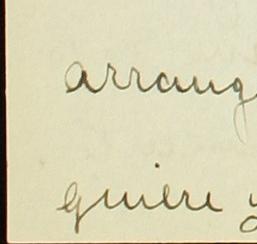 arrang
quiere